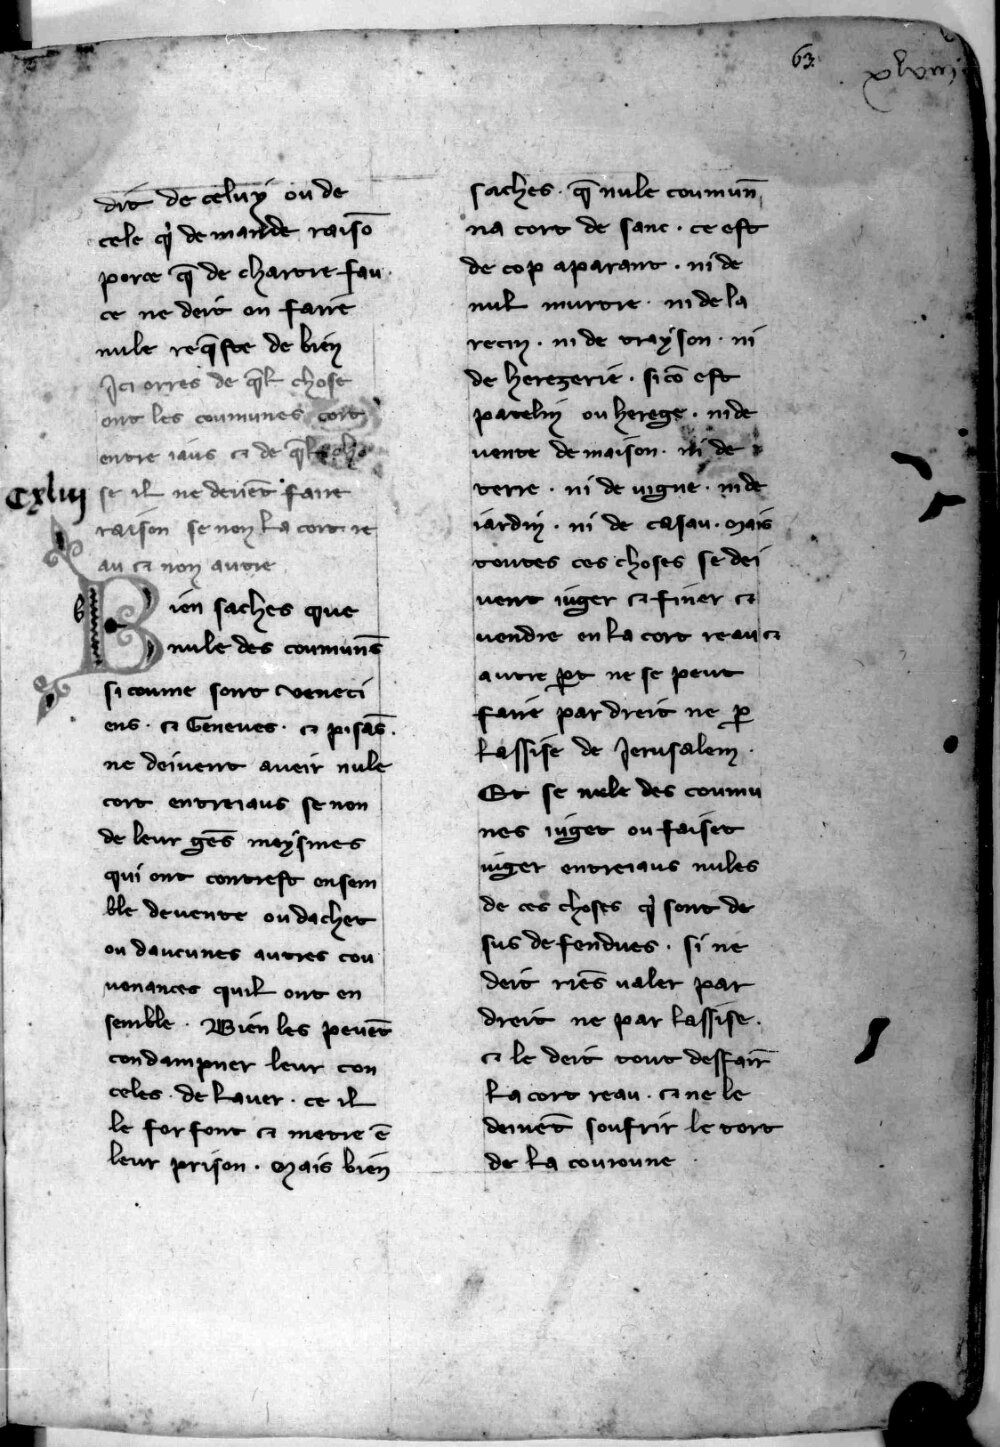 63
xlviij
dit de celuy ou de
cele q̇ demande raisō
porce q̄ de chartre fau
ce ne deit on faire
nule req̄ste de bien
Ici orres de q̄l chose
ont les coumunes cort
entre iaus ⁊ de q̄ls cho
se il ne deuēt faire
raison se non la cort re
au ⁊ non autre
Cxliij
Bien saches que
nule des coumuns̄
si coume sont veneci
ens · ⁊ Geneues · ⁊ pisās̄ ·
ne doiuent aueir nule
cort entreiaus se non
de leur gēs meysmes
qui ont contrest ensem
ble deuente ou dachet
ou daucunes autres cou
uenances quil ont en
semble · Bien les peuēt
condampner leur con
celes · de lauer · ce il
le forfont ⁊ metre ē
leur prison · Mais bien
saches · q̄ nule coumun̄
na cort de sanc · ce est
de cop aparant · ni de
nul murtre · ni de la
recin · ni de trayson · ni
de herezerie · si cō est
patelin ou herege · ni de
vente de maison · ni de
terre · ni de uigne · ni de
iardin · ni de casau · Mais
toutes ces choses se dei
uent iuger ⁊ finer ⁊
vendre en la cort reau ⁊
autre ꝑt ne se peut
faire par dreit ne ꝑ
lassise de Jerusalem ·
Et se nule des coumu
nes iuget ou faiset
iuger entreiaus nules
de ces choses q̇ sont de
sus defendues · si ne
deit riēs ualer par
dreit ne par lassise ·
⁊ le deit tout desfair̄
la cort reau · ⁊ ne le
deiuēt soufrir le tort
de la couroune